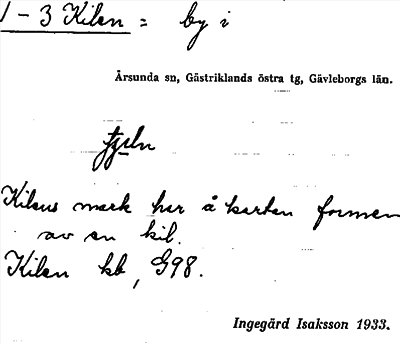 1-3 Kilen = by i
Årsunda sn, Gästriklands östra tg, Gävleborgs län.
Kilens mark har å kartan formen
av en kil.
Kilen kb, G98.
Ingegärd Isaksson 1933.